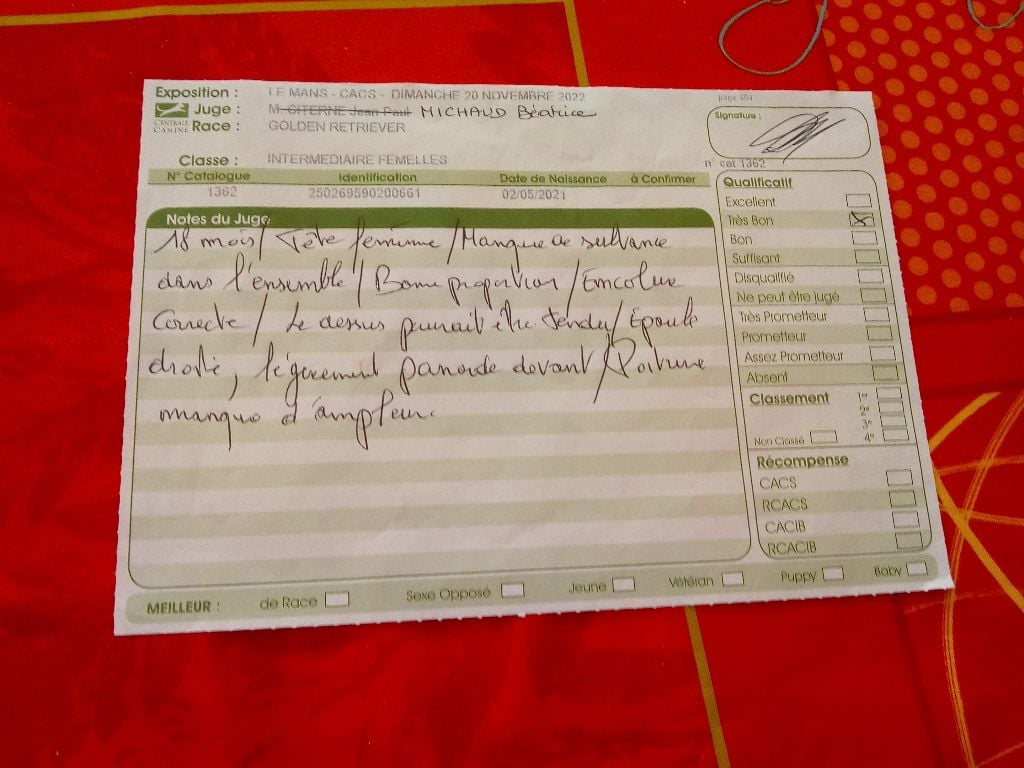 Exposition : LE MANS - CACS - DIMANCHE 20 NOVEMBRE 2022
page 451
Juge : M. CITERNE Jean Paul MICHAUD Béatrice
CENTRALE CANINE
Race : GOLDEN RETRIEVER
Signature :
Classe : INTERMEDIAIRE FEMELLES
n° cat 1362
N° Catalogue Identification Date de Naissance à Confirmer
1362 250269590200661 02/05/2021
Notes du Juge
18 mois / Tête féminine / Manque de
dans l'ensemble / Bonne proportion / Encolure
Correcte / Le dessus pourrait être tendu / Epaule
droite, légèrement panarde devant / Poitrine
manque d'ampleur.
Qualificatif
Excellent
Très Bon
Bon
Suffisant
Disqualifié
Ne peut être jugé
Très Prometteur
Prometteur
Assez Prometteur
Absent
Classement 1er
2e
3e
Non Classé 4e
Récompense
CACS
RCACS
CACIB
RCACIB
MEILLEUR : de Race Sexe Opposé Jeune Vétéran Puppy Baby